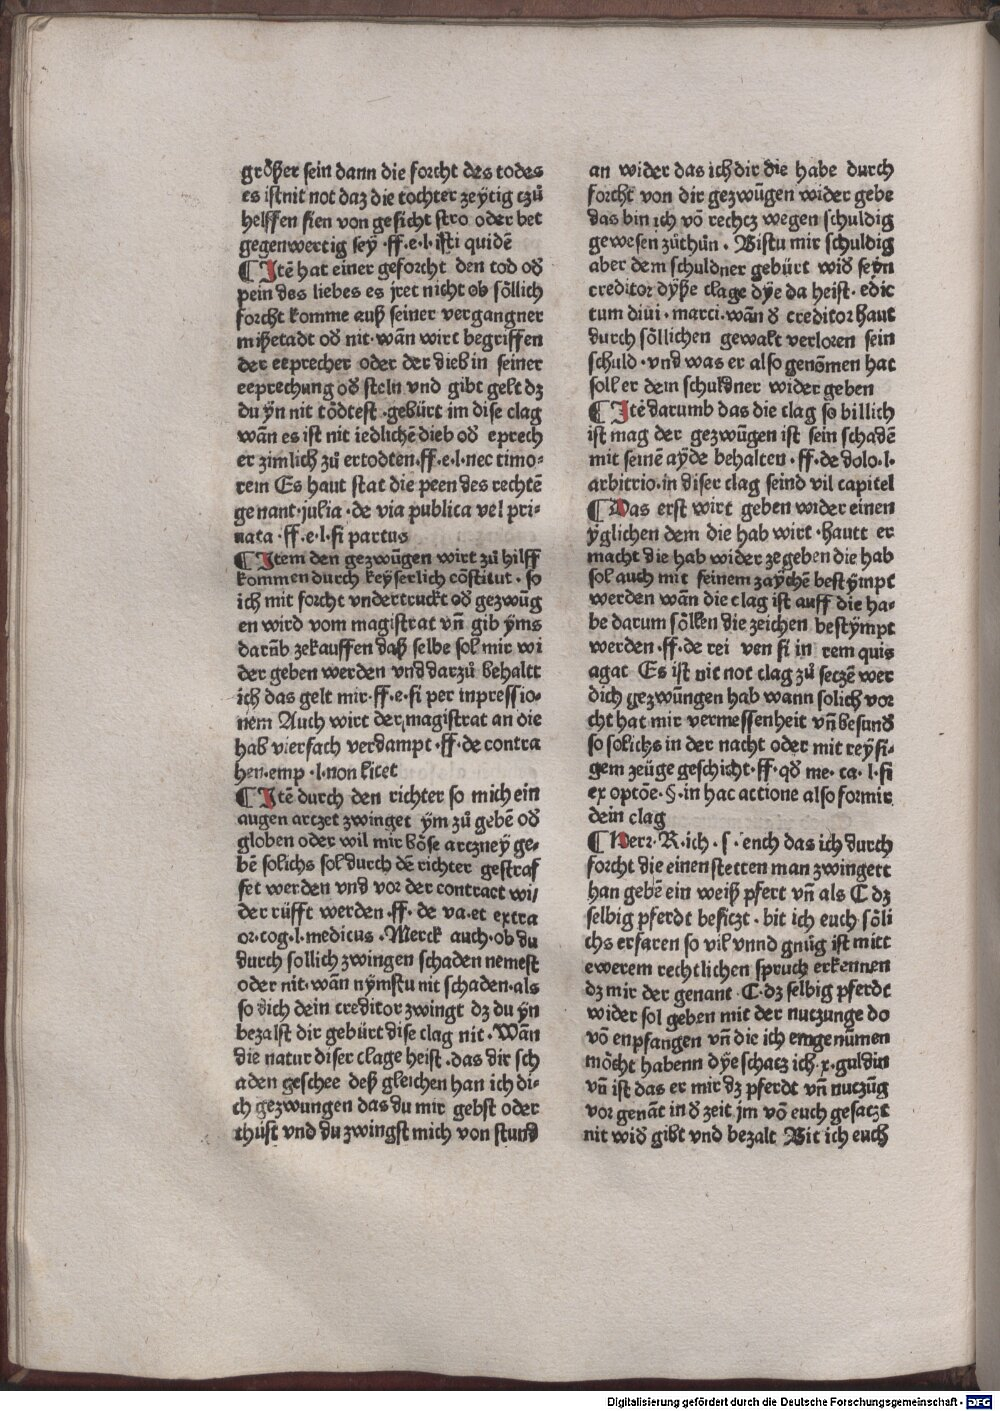 größer sein dann die forcht des todes
es ist nit not daz die tochter zeytig czů
helffen sien von gesicht stro oder bet
gegenwertig seÿ ·ff·e·l·isti quidē
¶ Itē hat einer geforcht den tod oď
pein des liebes es jret nicht ob söllich
forcht komme auß seiner vergangner
mißetadt oď nit·wān wirt begriffen
der eeprecher oder der dieb in seiner
eeprechung oď steln vnd gibt gelt dz
du ÿn nit tödtest ·gebürt im dise clag
wān es ist nit iedlichē dieb oď eprech
er zimlich zů ertodten·ff·e·l·nec timo⸗
rem Es haut stat die peen des rechtē
genant·julia·de via publica vel pri⸗
uata ·ff·e·l·si partus
¶ Item den gezwūgen wirt zů hilff
kommen durch keyserlich cōstitut·so
ich mit forcht vndertruckt oď gezwūg
en wird vom magistrat vn̄ gib ÿms
darūb zekauffen daß selbe sol mir wi
der geben werden vnd darzů behaltt
ich das gelt mir·ff·e·si per inpressio⸗
nem Auch wirt der magistrat an die
hab vierfach verdampt ·ff·de contra
hen·emp·l·non licet
¶ Itē durch den richter so mich ein
augen artzet zwinget ÿm zů gebē oď
globen oder wil mir böse artzney ge⸗
bē solichs sol durch dē richter gestraf
fet werden vnd vor der contract wi⸗
der rüfft werden·ff·de va·et extra
or·cog·l·medicus·Merck auch·ob du
durch sollich zwingen schaden nemest
oder nit·wān nÿmstu nit schaden·als
so dich dein creditor zwingt dz du ÿn
bezalst dir gebürt dise clag nit·Wān
die natur diser clage heist·das dir sch
aden geschee deß gleichen han ich di⸗
ch gezwungen das du mir gebst oder
thüst vnd du zwingst mich von stund
an wider das ich dir die habe durch
forcht von dir gezwūgen wider gebe
das bin ich vō rechtz wegen schuldig
gewesen zůthůn·Bistu mir schuldig
aber dem schuldner gebürt wiď seyn
creditor dÿße clage dÿe da heist·edic
tum diui·marci·wān ď creditor haut
durch söllichen gewalt verloren sein
schuld·vnd was er also genōmen hat
soll er dem schuldner wider geben
¶ Itē darumb das die clag so billich
ist mag der gezwūgen ist sein schadē
mit seinē ayde behalten·ff·de dolo·l·
arbitrio·in diser clag seind vil capitel
¶ Das erst wirt geben wider einen
ÿglichen dem die hab wirt·hautt er
macht die hab wider zegeben die hab
sol auch mit seinem zaychē bestÿmpt
werden wān die clag ist auff die ha⸗
be darum söllen die zeichen bestÿmpt
werden·ff·de rei ven si in rem quis
agat Es ist nit not clag zů seczē wer
dich gezwūngen hab wann solich vor
cht hat mir vermessenheit vn̄ besund
so solichs in der nacht oder mit reÿsi⸗
gem zeüge geschicht·ff·qď me·ca·l·si
ex optōe·§·in hac actione also formir
dein clag
¶ Herr·R·ich·s·ench das ich durch
forcht die einen stetten man zwingett
han gebē ein weiß pfert vn̄ als C dz
selbig pferdt besiczt·bit ich euch söli
chs erfaren so vil vnnd gnůg ist mitt
ewerem rechtlichen spruch erkennen
dz mir der genant·C·dz selbig pferdt
wider sol geben mit der nutzunge do
vō enpfangen vn̄ die ich emgenūmen
möcht habenn dÿe schacz ich·x·guldin
vn̄ ist das er mir dz pferdt vn̄ nutzūg
vor genāt in ď zeit jm vō euch gesaczt
nit wiď gibt vnd bezalt Bit ich euch
Digitalisierung gefördert durch die Deutsche Forschungsgemeinschaft - DFG